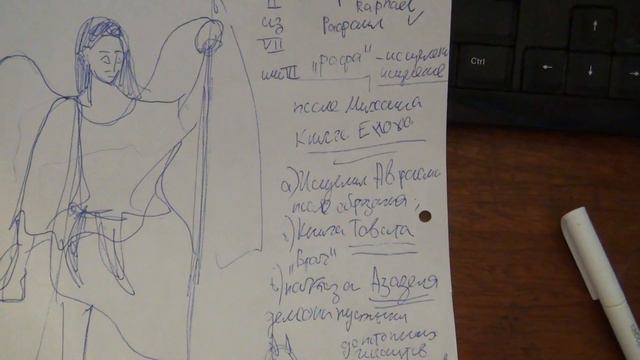 Raphael
из Рафаил
VII
"рафа" - исцелять
исцеление
после Михаила
Книга Еноха
а) Исцелил Авраама
после обрезания;
Книга Товита
"Врач"
Азазеля
демона пустыни
допотопных
гигантов
Ctrl